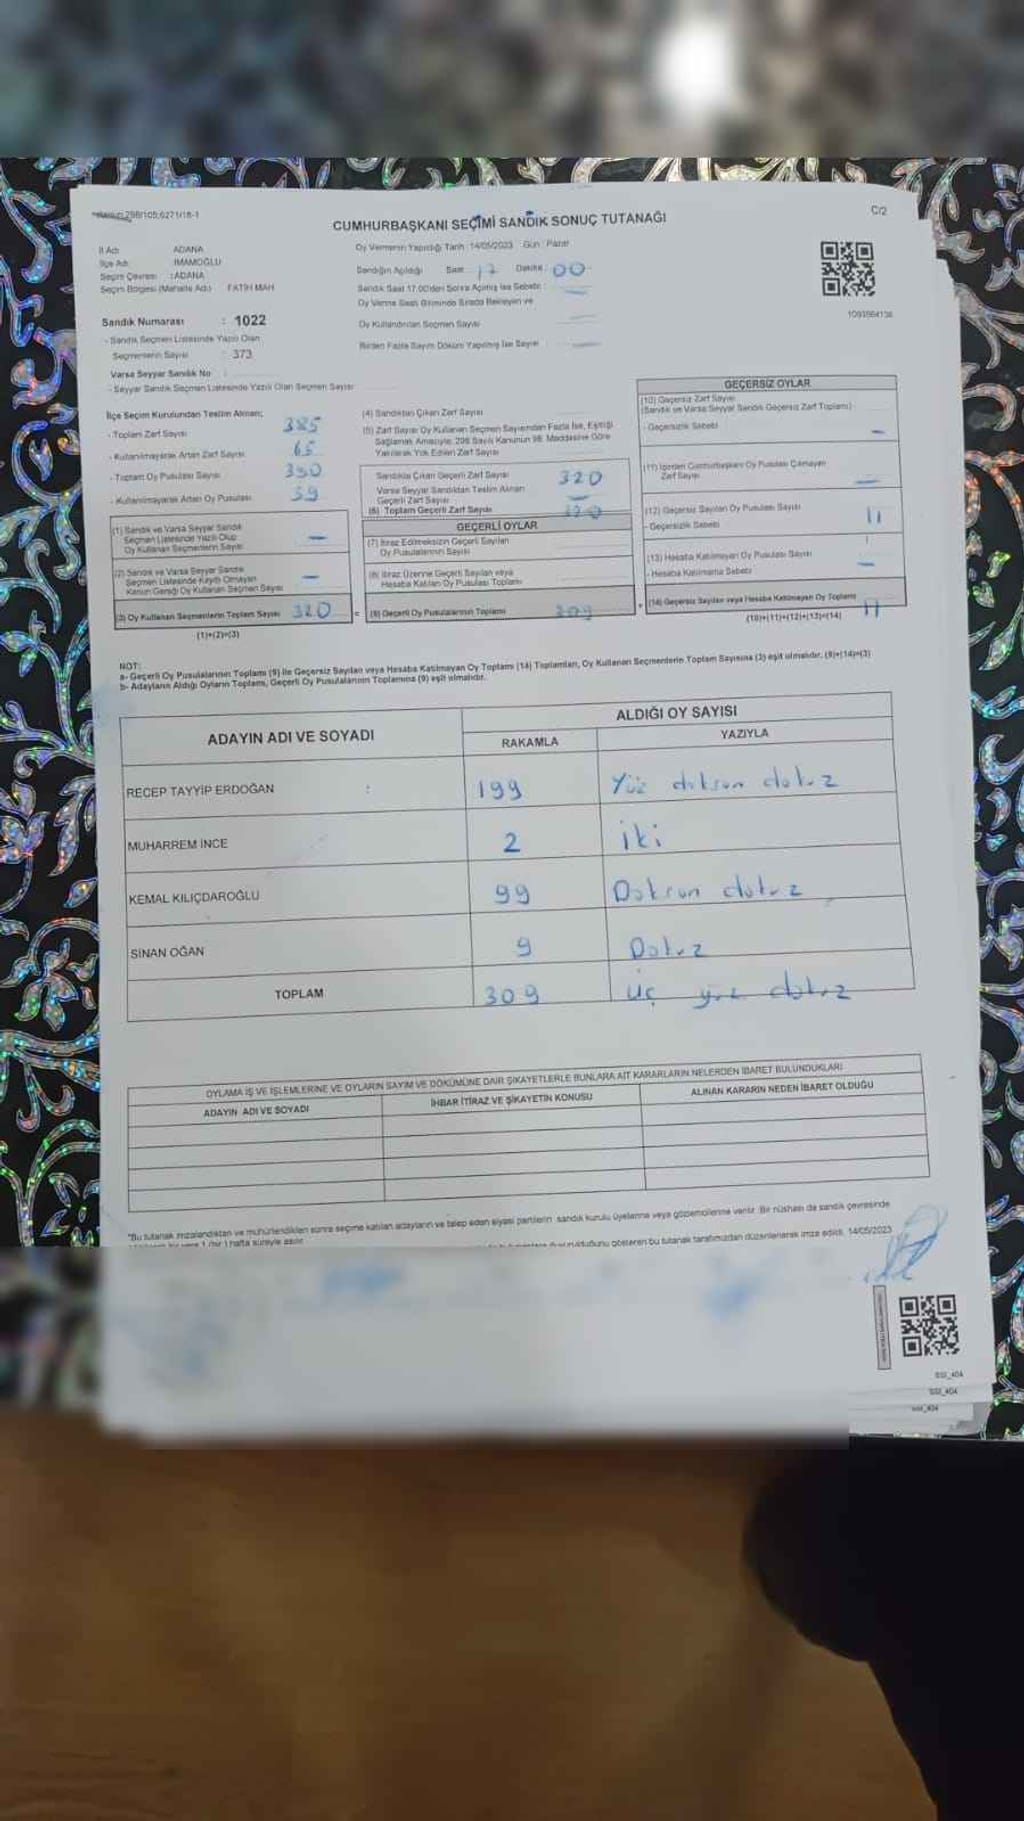 298/105;6271/18-1
C/2
CUMHURBAŞKANI SEÇİMİ SANDIK SONUÇ TUTANAĞI
İl Adı : ADANA
İlçe Adı : İMAMOĞLU
Seçim Çevresi : ADANA
Seçim Bölgesi (Mahalle Adı) : FATİH MAH
Oy Vermenin Yapıldığı Tarih : 14/05/2023 Gün : Pazar
Sandığın Açıldığı Saat : 17 Dakika : 00
Sandık Saat 17.00'den Sonra Açılmış İse Sebebi : —
Oy Verme Saati Bitiminde Sırada Bekleyen ve
Oy Kullandırılan Seçmen Sayısı —
Birden Fazla Sayım Döküm Yapılmış İse Sayısı —
Sandık Numarası : 1022
- Sandık Seçmen Listesinde Yazılı Olan
Seçmenlerin Sayısı : 373
Varsa Seyyar Sandık No :
- Seyyar Sandık Seçmen Listesinde Yazılı Olan Seçmen Sayısı
İlçe Seçim Kurulundan Teslim Alınan;
- Toplam Zarf Sayısı 385
- Kullanılmayarak Artan Zarf Sayısı 65
- Toplam Oy Pusulası Sayısı 390
- Kullanılmayarak Artan Oy Pusulası 59
(1) Sandık ve Varsa Seyyar Sandık
Seçmen Listesinde Yazılı Olup
Oy Kullanan Seçmenlerin Sayısı —
(2) Sandık ve Varsa Seyyar Sandık
Seçmen Listesinde Kayıtlı Olmayan
Kanun Gereği Oy Kullanan Seçmen Sayısı —
(3) Oy Kullanan Seçmenlerin Toplam Sayısı 320
(1)+(2)=(3)
(4) Sandıktan Çıkan Zarf Sayısı
(5) Zarf Sayısı Oy Kullanan Seçmen Sayısından Fazla İse, Eşitliği
Sağlamak Amacıyla; 298 Sayılı Kanunun 98. Maddesine Göre
Yakılarak Yok Edilen Zarf Sayısı
Sandıkta Çıkan Geçerli Zarf Sayısı 320
Varsa Seyyar Sandıktan Teslim Alınan
Geçerli Zarf Sayısı —
(6) Toplam Geçerli Zarf Sayısı 320
GEÇERLİ OYLAR
(7) İtiraz Edilmeksizin Geçerli Sayılan
Oy Pusulalarının Sayısı
(8) İtiraz Üzerine Geçerli Sayılan veya
Hesaba Katılan Oy Pusulası Toplamı
= (9) Geçerli Oy Pusulalarının Toplamı 309 +
GEÇERSİZ OYLAR
(10) Geçersiz Zarf Sayısı
(Sandık ve Varsa Seyyar Sandık Geçersiz Zarf Toplamı)
- Geçersizlik Sebebi —
(11) İçinden Cumhurbaşkanı Oy Pusulası Çıkmayan
Zarf Sayısı —
(12) Geçersiz Sayılan Oy Pusulası Sayısı 11
- Geçersizlik Sebebi
(13) Hesaba Katılmayan Oy Pusulası Sayısı
- Hesaba Katılmama Sebebi —
(14) Geçersiz Sayılan veya Hesaba Katılmayan Oy Toplamı 11
(10)+(11)+(12)+(13)=(14)
NOT:
a- Geçerli Oy Pusulalarının Toplamı (9) ile Geçersiz Sayılan veya Hesaba Katılmayan Oy Toplamı (14) Toplamları, Oy Kullanan Seçmenlerin Toplam Sayısına (3) eşit olmalıdır. (9)+(14)=(3)
b- Adayların Aldığı Oyların Toplamı, Geçerli Oy Pusulalarının Toplamına (9) eşit olmalıdır.
ADAYIN ADI VE SOYADI ALDIĞI OY SAYISI
RAKAMLA YAZIYLA
RECEP TAYYİP ERDOĞAN : 199 Yüz doksan dokuz
MUHARREM İNCE 2 iki
KEMAL KILIÇDAROĞLU 99 Doksan dokuz
SİNAN OĞAN 9 Dokuz
TOPLAM 309 üç yüz dokuz
OYLAMA İŞ VE İŞLEMLERİNE VE OYLARIN SAYIM VE DÖKÜMÜNE DAİR ŞİKAYETLERLE BUNLARA AİT KARARLARIN NELERDEN İBARET BULUNDUKLARI
ADAYIN ADI VE SOYADI İHBAR İTİRAZ VE ŞİKAYETİN KONUSU ALINAN KARARIN NEDEN İBARET OLDUĞU
"Bu tutanak imzalandıktan ve mühürlendikten sonra seçime katılan adayların ve talep eden siyasi partilerin sandık kurulu üyelerine veya gözlemcilerine verilir. Bir nüshası da sandık çevresinde
1 (bir) hafta süreyle asılır. olduğunu gösteren bu tutanak tarafımızdan düzenlenerek imza edildi. 14/05/2023
SSI_404
SSI_404
SSI_404